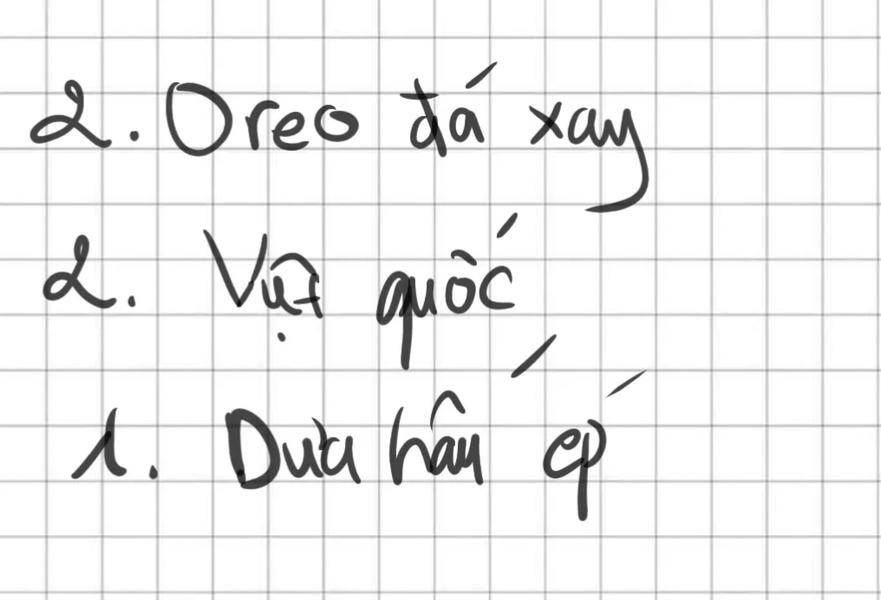 2. Oreo đá xay
2. Việt quốc
1. Dưa hấu ép